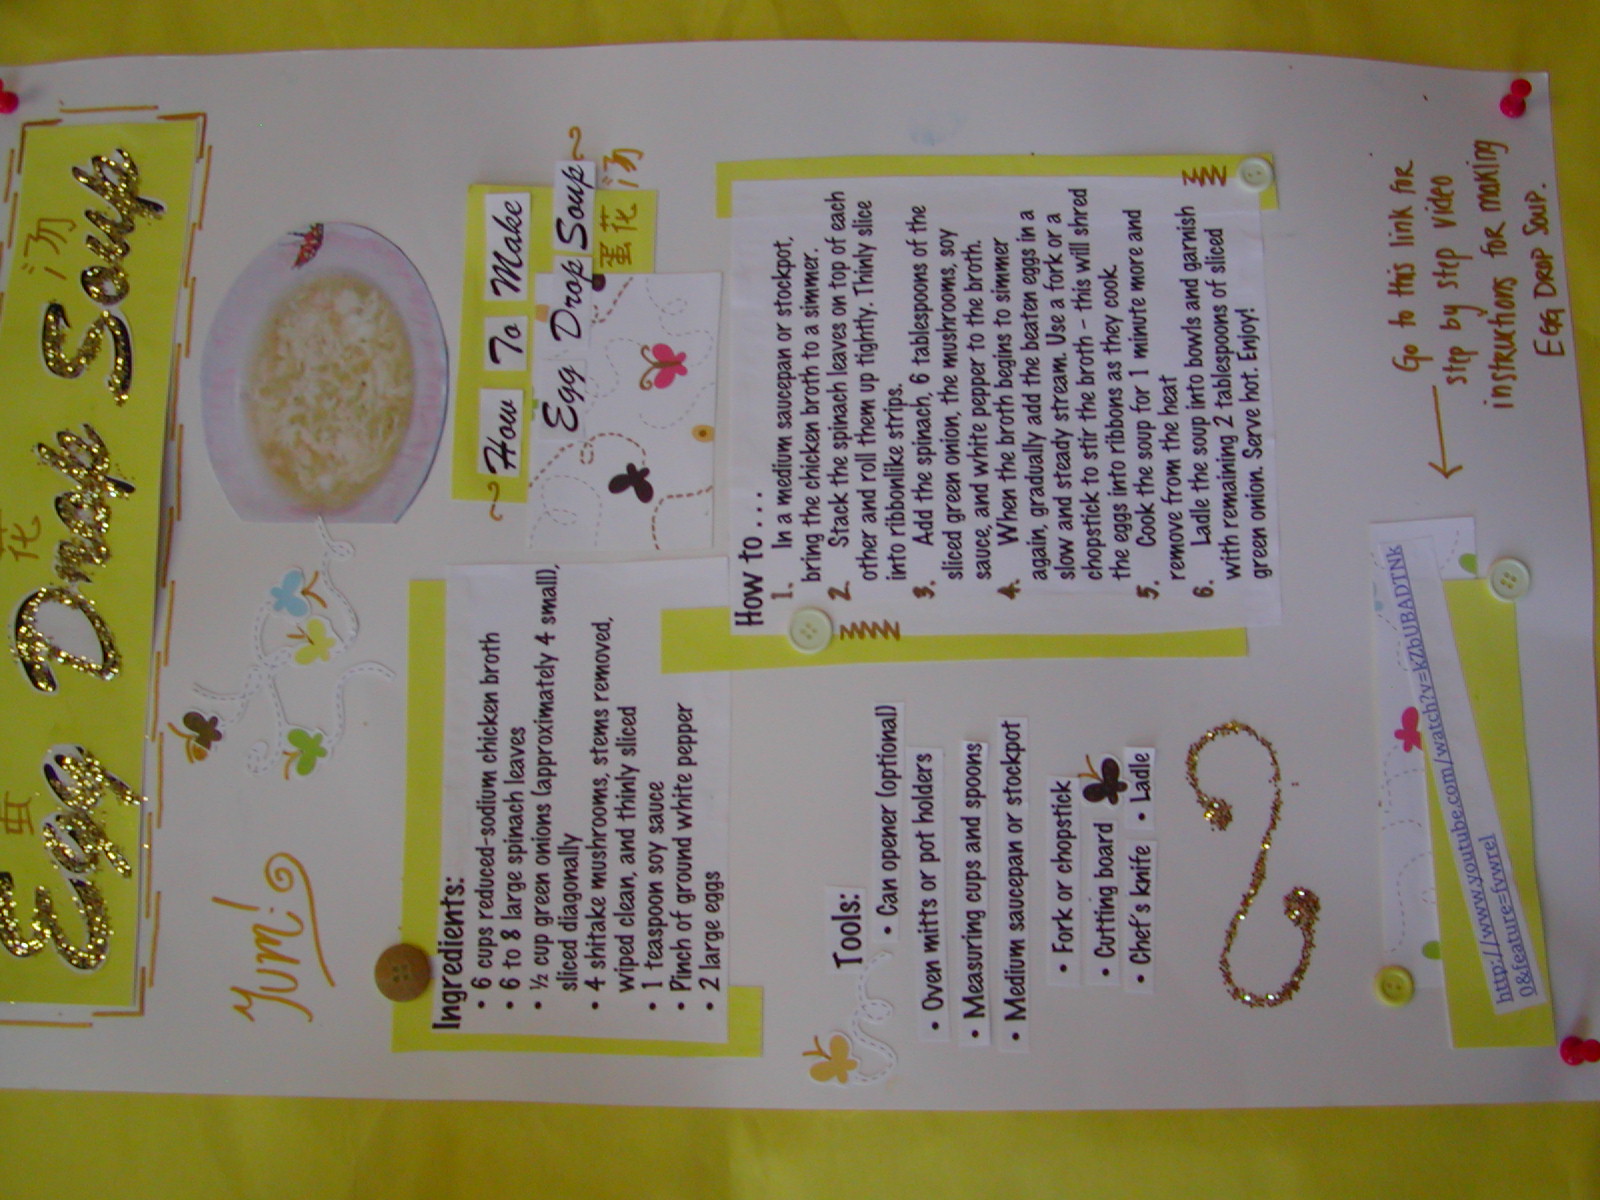 蛋 花 汤
Egg Drop Soup
Yum!
How To Make
Egg Drop Soup
蛋花汤
Ingredients:
• 6 cups reduced-sodium chicken broth
• 6 to 8 large spinach leaves
• ½ cup green onions (approximately 4 small),
sliced diagonally
• 4 shitake mushrooms, stems removed,
wiped clean, and thinly sliced
• 1 teaspoon soy sauce
• Pinch of ground white pepper
• 2 large eggs
How to . . .
1. In a medium saucepan or stockpot,
bring the chicken broth to a simmer.
2. Stack the spinach leaves on top of each
other and roll them up tightly. Thinly slice
into ribbonlike strips.
3. Add the spinach, 6 tablespoons of the
sliced green onion, the mushrooms, soy
sauce, and white pepper to the broth.
4. When the broth begins to simmer
again, gradually add the beaten eggs in a
slow and steady stream. Use a fork or a
chopstick to stir the broth – this will shred
the eggs into ribbons as they cook.
5. Cook the soup for 1 minute more and
remove from the heat
6. Ladle the soup into bowls and garnish
with remaining 2 tablespoons of sliced
green onion. Serve hot. Enjoy!
Tools:
• Can opener (optional)
• Oven mitts or pot holders
• Measuring cups and spoons
• Medium saucepan or stockpot
• Fork or chopstick
• Cutting board
• Chef's knife • Ladle
http://www.youtube.com/watch?v=kZbUBADTNk
0&feature=fvwrel
Go to this link for
step by step video
instructions for making
Egg Drop Soup.